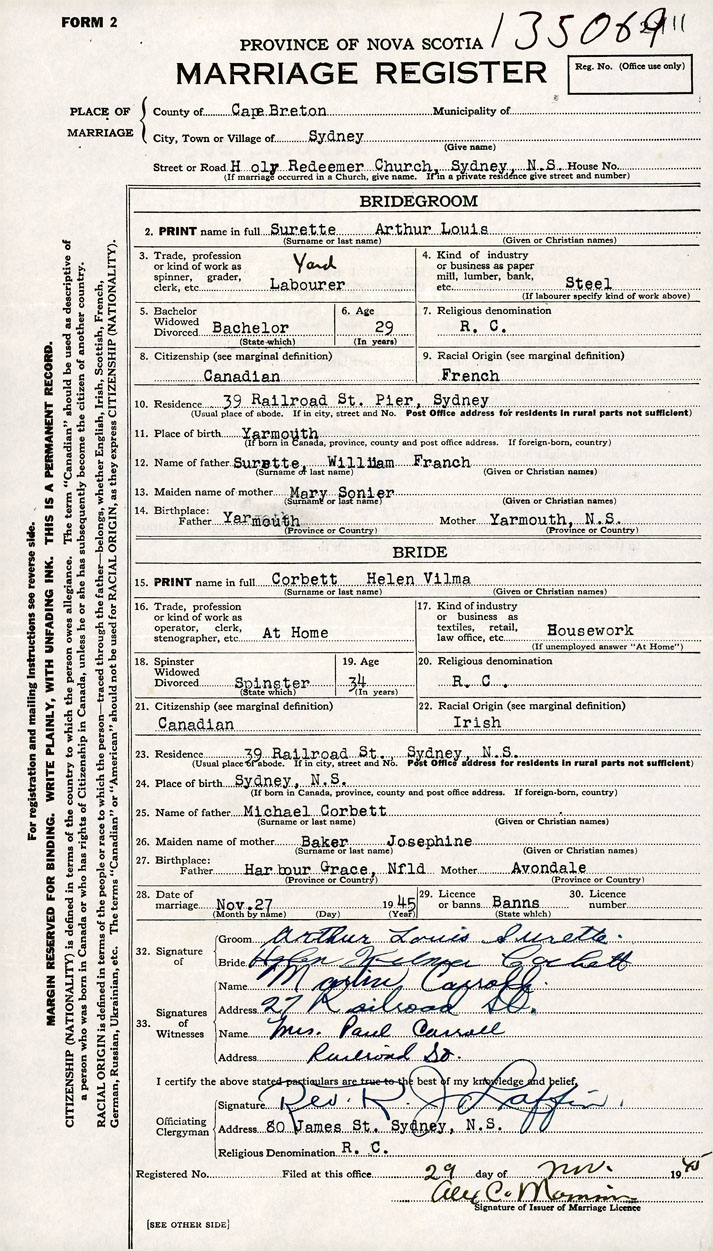 FORM 2
1350691
PROVINCE OF NOVA SCOTIA
MARRIAGE REGISTER
Reg. No. (Office use only)
PLACE OF MARRIAGE
County of Cape Breton Municipality of
City, Town or Village of Sydney
(Give name)
Street or Road Holy Redeemer Church, Sydney, N.S. House No.
(If marriage occurred in a Church, give name. If in a private residence give street and number)
BRIDEGROOM
2. PRINT name in full Surette Arthur Louis
(Surname or last name) (Given or Christian names)
3. Trade, profession or kind of work as spinner, grader, clerk, etc. Yard Labourer
4. Kind of industry or business as paper mill, lumber, bank, etc. Steel
(If labourer specify kind of work above)
5. Bachelor Widowed Divorced Bachelor
(State which)
6. Age 29
(In years)
7. Religious denomination
R. C.
8. Citizenship (see marginal definition)
Canadian
9. Racial Origin (see marginal definition)
French
10. Residence 39 Railroad St. Pier, Sydney
(Usual place of abode. If in city, street and No. Post Office address for residents in rural parts not sufficient)
11. Place of birth Yarmouth
(If born in Canada, province, county and post office address. If foreign-born, country)
12. Name of father Surette, William Franch
(Surname or last name) (Given or Christian names)
13. Maiden name of mother Mary Sonier
(Surname or last name) (Given or Christian names)
14. Birthplace:
Father Yarmouth Mother Yarmouth, N.S.
(Province or Country) (Province or Country)
BRIDE
15. PRINT name in full Corbett Helen Vilma
(Surname or last name) (Given or Christian names)
16. Trade, profession or kind of work as operator, clerk, stenographer, etc. At Home
17. Kind of industry or business as textiles, retail, law office, etc. Housework
(If unemployed answer "At Home")
18. Spinster Widowed Divorced Spinster
(State which)
19. Age 34
(In years)
20. Religious denomination
R. C.
21. Citizenship (see marginal definition)
Canadian
22. Racial Origin (see marginal definition)
Irish
23. Residence 39 Railroad St. Sydney, N.S.
(Usual place of abode. If in city, street and No. Post Office address for residents in rural parts not sufficient)
24. Place of birth Sydney, N.S.
(If born in Canada, province, county and post office address. If foreign-born, country)
25. Name of father Michael Corbett
(Surname or last name) (Given or Christian names)
26. Maiden name of mother Baker Josephine
(Surname or last name) (Given or Christian names)
27. Birthplace:
Father Harbour Grace, Nfld Mother Avondale
(Province or Country) (Province or Country)
28. Date of marriage Nov. 27 1945
(Month by name) (Day) (Year)
29. Licence or banns Banns
(State which)
30. Licence number
32. Signature of
Groom Arthur Louis Surette
Bride Helen Vilma Corbett
33. Signatures of Witnesses
Name Martin Carroll
Address 27 Railroad St.
Name Mrs. Paul Carroll
Address Railroad St.
I certify the above stated particulars are true to the best of my knowledge and belief,
Officiating Clergyman
Signature Rev. R. J. Laffin.
Address 80 James St. Sydney, N.S.
Religious Denomination R. C.
Registered No. Filed at this office 29 day of Nov. 1945
Alex C.
Signature of Issuer of Marriage Licence
[SEE OTHER SIDE]
For registration and mailing instructions see reverse side.
MARGIN RESERVED FOR BINDING. WRITE PLAINLY, WITH UNFADING INK. THIS IS A PERMANENT RECORD.
CITIZENSHIP (NATIONALITY) is defined in terms of the country to which the person owes allegiance. The term "Canadian" should be used as descriptive of
a person who was born in Canada or who has rights of Citizenship in Canada, unless he or she has subsequently become the citizen of another country.
RACIAL ORIGIN is defined in terms of the people or race to which the person—traced through the father—belongs, whether English, Irish, Scottish, French,
German, Russian, Ukrainian, etc. The terms "Canadian" or "American" should not be used for RACIAL ORIGIN, as they express CITIZENSHIP (NATIONALITY).